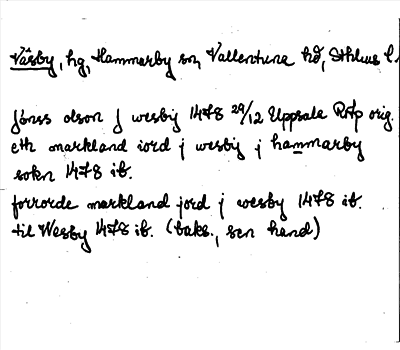 Väsby, hg, Hammarby sn, Vallentuna hd, Sthlms l.
jönss olson j wesby 1478 29/12 Uppsala RAp orig.
eth markland iord j wesby j hammarby
sokn 1478 ib.
forrorde markland jord j wesby 1478 ib.
til Wesby 1478 ib. (baks., sen hand)